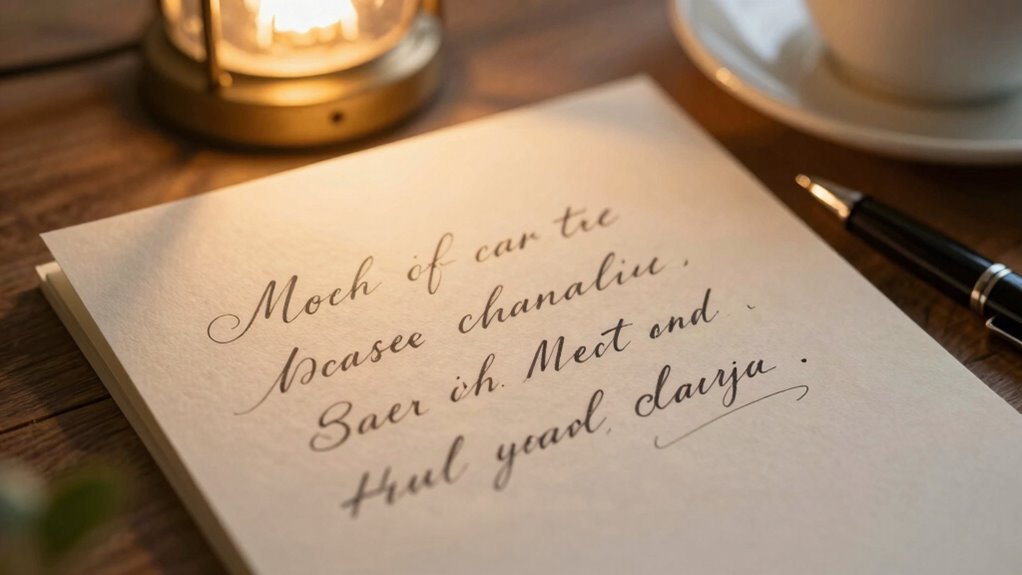 Moch of car tre
bcasee chanaliu.
Saer ih. Mect and.
Hrul yeaol. daurja.